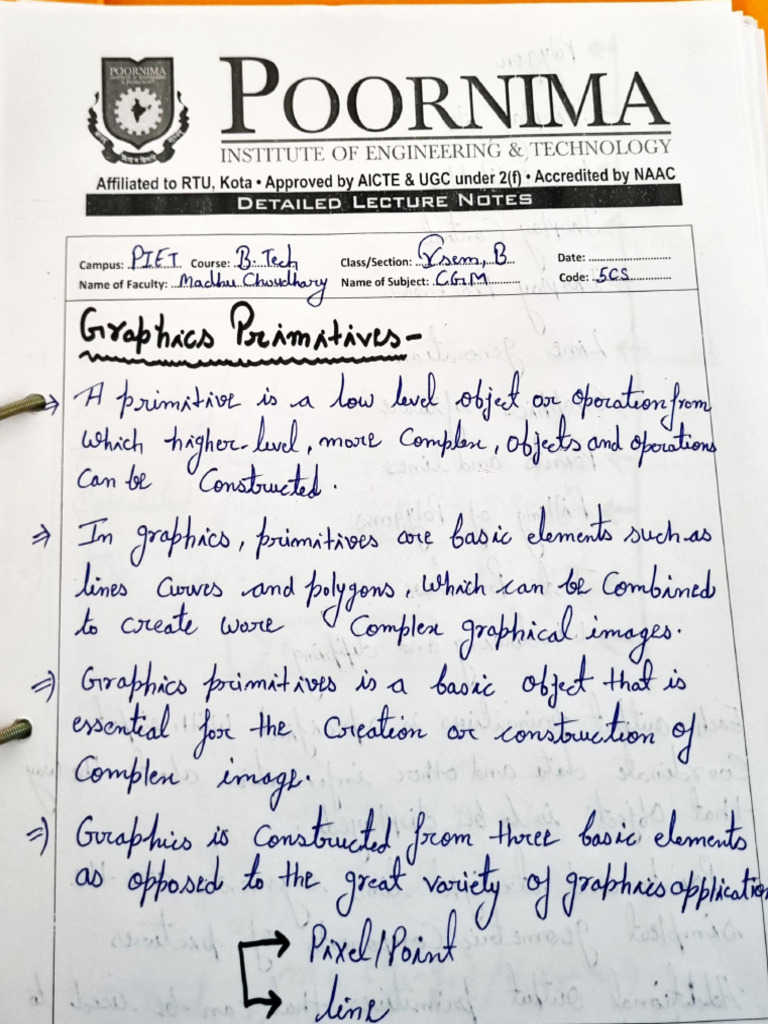 POORNIMA
INSTITUTE OF ENGINEERING & TECHNOLOGY
POORNIMA
INSTITUTE OF ENGINEERING & TECHNOLOGY
Affiliated to RTU, Kota • Approved by AICTE & UGC under 2(f) • Accredited by NAAC
DETAILED LECTURE NOTES
Campus: PIET Course: B.Tech Class/Section: sem, B Date: ..............................
Name of Faculty: Madhu Choudhary Name of Subject: C.G.M Code: 5CS
Graphics Primitives-
⇒ A primitive is a low level object or operation from
which higher-level, more complex, objects and operations
can be constructed.
⇒ In graphics, primitives are basic elements such as
lines curves and polygons, which can be combined
to create wore complex graphical images.
⇒ Graphics primitives is a basic object that is
essential for the creation or construction of
complex image.
⇒ Graphics is constructed from three basic elements
as opposed to the great variety of graphics application
→ Pixel/Point
→ line